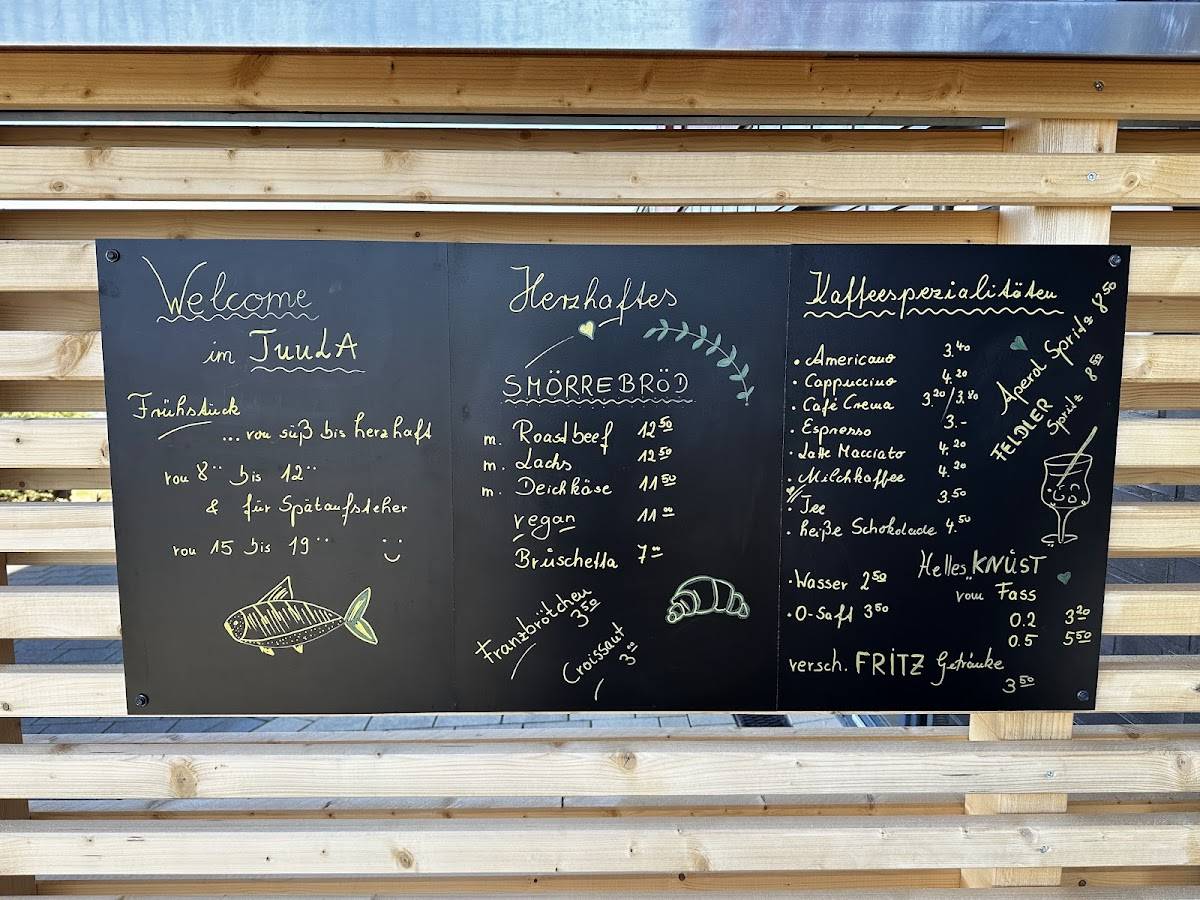 Welcome
im JuulA
Frühstück
... von süß bis herzhaft
von 8°° bis 12°°
& für Spätaufsteher
von 15 bis 19°°
Herzhaftes
SMÖRREBRÖD
m. Roastbeef 12 50
m. Lachs 12 50
m. Deichkäse 11 50
vegan 11 00
Brüschetta 7 00
Franzbrötchen
3 50
Croissaut
3 00
Kaffeespezialitäten
• Americano 3.40
• Cappuccino 4.20
• Café Crema 3.20/3.80
• Espresso 3.-
• Latte Macciato 4.20
• Milchkaffee 4.20
• Tee 3.50
• heiße Schokolade 4.50
Aperol Spritz 8 50
FELDLER
Spritz 8 50
• Wasser 2 50
• O-Saft 3 50
Helles "KNÜST"
vom Fass
0.2 3 20
0.5 5 50
versch. FRITZ Getränke
3 50